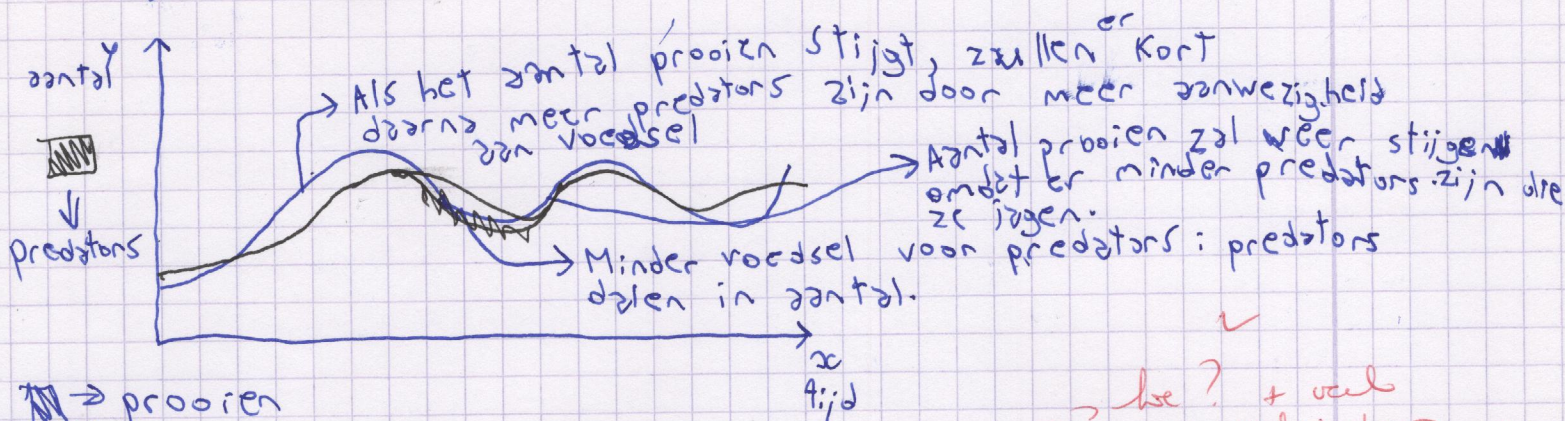 aantal Y
Als het aantal prooien stijgt, zullen er kort
daarna meer predators zijn door meer aanwezigheid
aan voedsel
Aantal prooien zal weer stijgen
omdat er minder predators zijn die
ze jagen.
predators
Minder voedsel voor predators : predators
dalen in aantal.
x
tijd
→ prooien
hoe ? +